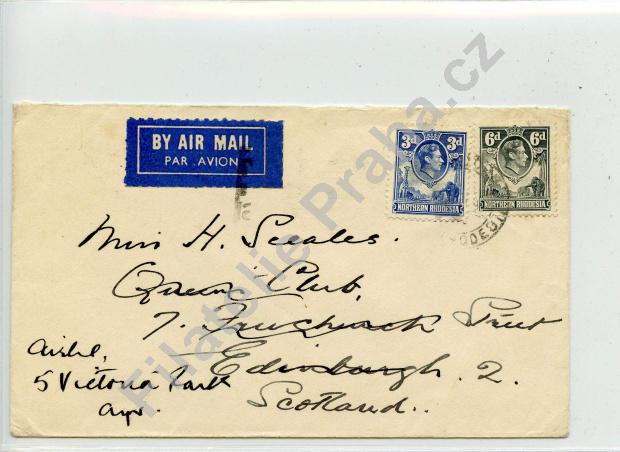 BY AIR MAIL
PAR AVION
3d 3d
NORTHERN RHODESIA
6d 6d
NORTHERN RHODESIA
Miss H. Scales.
Queen's Club,
7. Street
Edinburgh. 2.
Scotland..
5 Victoria Park
Ayr.
Filatelie Praha.cz